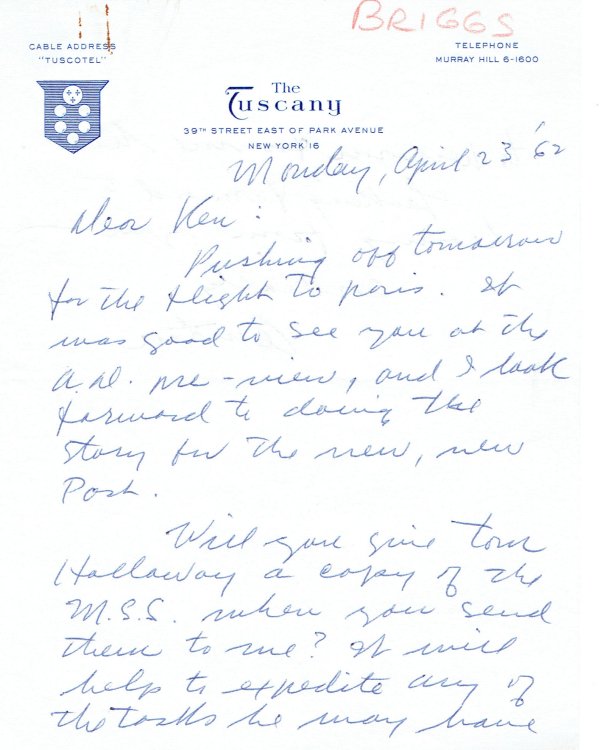 BRIGGS
CABLE ADDRESS
"TUSCOTEL"
TELEPHONE
MURRAY HILL 6-1600
The
Tuscany
39TH STREET EAST OF PARK AVENUE
NEW YORK 16
Monday, April 23 '62
Dear Ken:
Pushing off tomorrow
for the flight to paris. It
was good to see you at the
A.D. pre-view, and I look
forward to doing the
story for the new, new
Post.
Will you give Tom
Hallaway a copy of the
M.S.S. when you send
them to me? It will
help to expedite any of
the tasks he may have